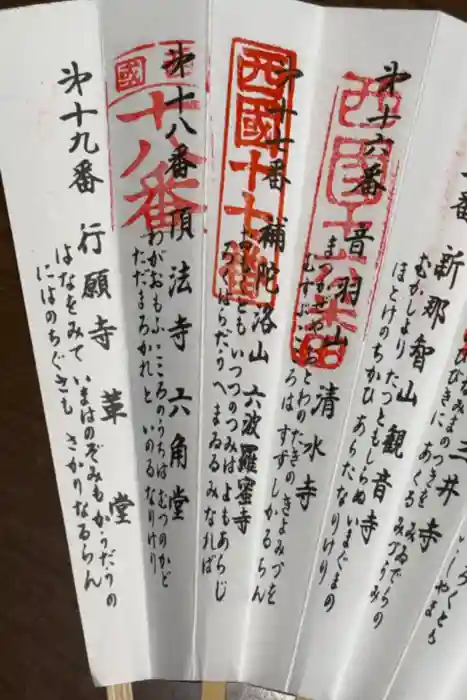 三井寺
いでいるや なみまのつきを みゐでらの
かねのひびきに あくる みづうみ
新那智山 観音寺
むかしより たつともしらぬ いまぐまの
ほとけのちかひ あらたなりけり
第十六番 音羽山 清水寺
西国十六番
まつかぜや おとわのたきの きよみづを
むすぶこころは すずしかるらん
第十七番 補陀洛山 六波羅蜜寺
西國十七番
いつつのつみは よもあらじ
ろくはらだうへ まゐるみなれば
第十八番 頂法寺 六角堂
西國
十八番
わがおもふ こころのうちは むつのかど
ただまろかれと いのるなりけり
第十九番 行願寺 革堂
はなをみて いまはのぞみも かうだうの
にはのちぐさも さかりなるらん